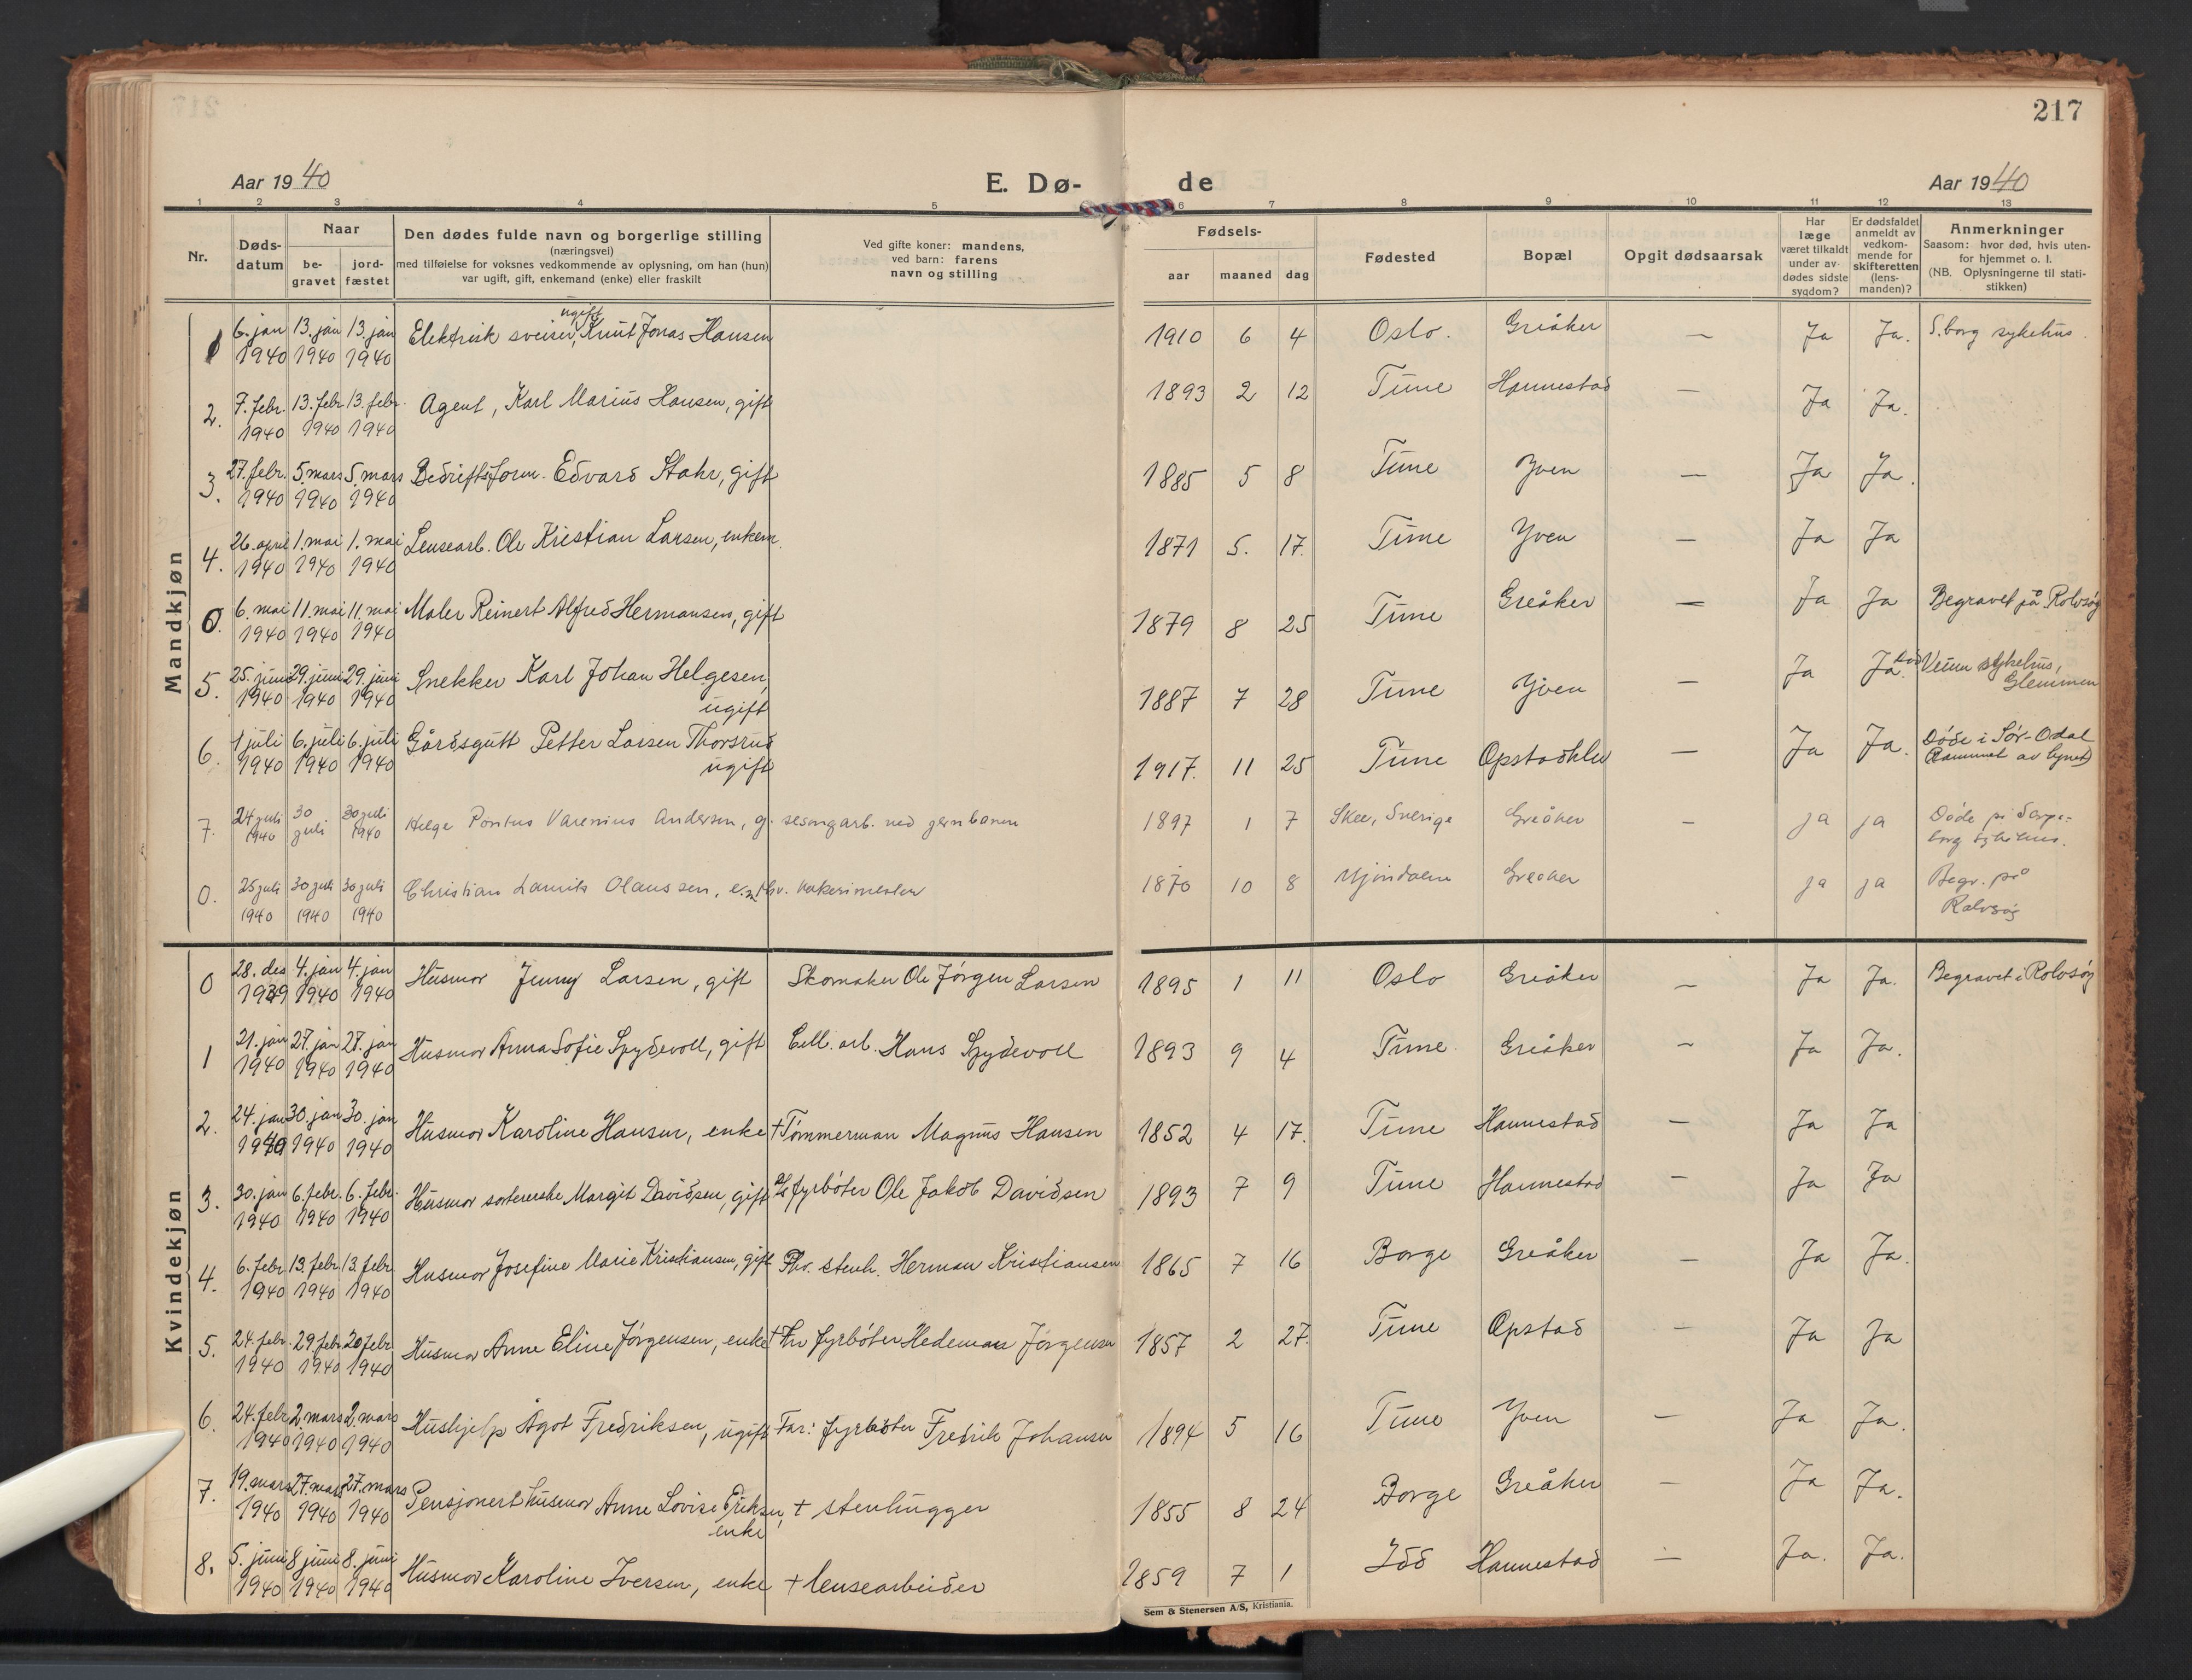 217
Aar 1940 E. Dø- de Aar 1940
1 2 3 4 5 6 7 8 9 10 11 12 13
Nr.
Døds-
datum
Naar
be-
gravet
jord-
fæstet
Den dødes fulde navn og borgerlige stilling
(næringsvei)
med tilføielse for voksnes vedkommende av oplysning, om han (hun)
var ugift, gift, enkemand (enke) eller fraskilt
Ved gifte koner: mandens,
ved barn: farens
navn og stilling
Fødsels-
aar maaned dag
Fødested
Bopæl
Opgit dødsaarsak
Har
læge
været tilkaldt
under av-
dødes sidste
sygdom?
Er dødsfaldet
anmeldt av
vedkom-
mende for
skifteretten
(lens-
manden)?
Anmerkninger
Saasom: hvor død, hvis uten-
for hjemmet o. l.
(NB. Oplysningerne til stati-
stikken)
Mandkjøn
ugift
1 6. jan 13. jan 13. jan Elektrisk sveiser, Knut Jonas Hansen 1910 6 4 Oslo. Greåker — Ja Ja. S.borg sykehus.
1940 1940 1940
2. 7. febr. 13. febr 13. febr. Agent, Karl Marius Hansen, gift 1893 2 12 Tune Hannestad — Ja Ja.
1940 1940 1940
3. 27. febr. 5. mars 5. mars Bedriftsform. Edvard Stahr, gift 1885 5 8 Tune Yven — Ja Ja.
1940 1940 1940
4. 26. april 1. mai 1. mai Lensearb. Ole Kristian Larsen, enkem. 1871 5. 17. Tune Yven — Ja Ja
1940 1940 1940
0. 6. mai 11. mai 11. mai Maler Reinert Alfred Hermansen, gift 1879 8 25 Tune Greåker — Ja Ja Begravet på Rolvsøy
1940 1940 1940
5. 25. juni 29. juni 29. juni Snekker Karl Johan Helgesen, 1887 7 28 Tune Yven — Ja Ja. Veum sykehus,
Glemmen
1940 1940 1940 ugift
6. 1 juli 6. juli 6. juli Gårdsgutt Petter Larsen Thorsrud 1917. 11 25 Tune Opstadklev — Ja Ja. Døde i Sør-Odal
(Rammet av lynet)
1940 1940 1940 ugift
7. 24 juli 30 30 juli Helge Pontus Varenius Andersen, g. sesongarb. ved jernbanen 1897 1 7 Skee, Sverige Greåker — ja ja Døde på Sarps-
1940 juli 1940 borg sykehus.
0. 25 juli 30 juli 30 juli Christian Lauritz Olaussen, e.m. fhv. bakerimester 1870 10 8 Mjøndalen Greåker ja ja Begr. på
1940 1940 1940 Rolvsøy
Kvindekjøn
0 28. des 4. jan 4. jan Husmor Jenny Larsen, gift Skomaker Ole Jørgen Larsen 1895 1 11 Oslo Greåker — Ja Ja. Begravet i Rolvsøy
1939 1940 1940
1 21. jan 27. jan 27. jan Husmor Anna Sofie Spydevoll, gift Cell. arb. Hans Spydevoll 1893 9 4 Tune Greåker — Ja Ja.
1940 1940 1940
2. 24. jan 30. jan 30. jan Husmor Karoline Hansen, enke + Tømmerman Magnus Hansen 1852 4 17. Tune Hannestad — Ja Ja
1940 1940 1940
3. 30. jan 6. febr. 6. febr. Husmor sorterske Margit Davidsen, gift fyrbøter Ole Jakob Davidsen 1893 7 9 Tune Hannestad — Ja Ja
1940 1940 1940
4. 6. febr 13. febr 13. febr. Husmor Josefine Marie Kristiansen, gift Fhv. stenh. Herman Kristiansen 1865 7 16 Borge Greåker — Ja Ja.
1940 1940 1940
5. 24. febr. 29. febr Husmor Anne Eline Jørgensen, enke + fhv fyrbøter Hedeman Jørgensen 1857 2 27. Tune Opstad — Ja Ja
1940 1940 1940
6. 24. febr 2 mars 2. mars Hushjelp Ågot Fredriksen, ugift Far: fyrbøter Fredrik Johansen 1894 5 16 Tune Yven — Ja Ja.
1940 1940 1940
7. 19. mars 27. mars 27. mars Pensjonert husmor Anne Lovise Eriksen, + stenhugger 1855 8 24 Borge Greåker — Ja Ja.
1940 1940 1940 enke
8. 5. juni 8 juni 8. juni Husmor Karoline Iversen, enke + lensearbeider 1859 7 1 Idd Hannestad — Ja. Ja.
1940 1940 1940
Sem & Stenersen A/S, Kristiania.